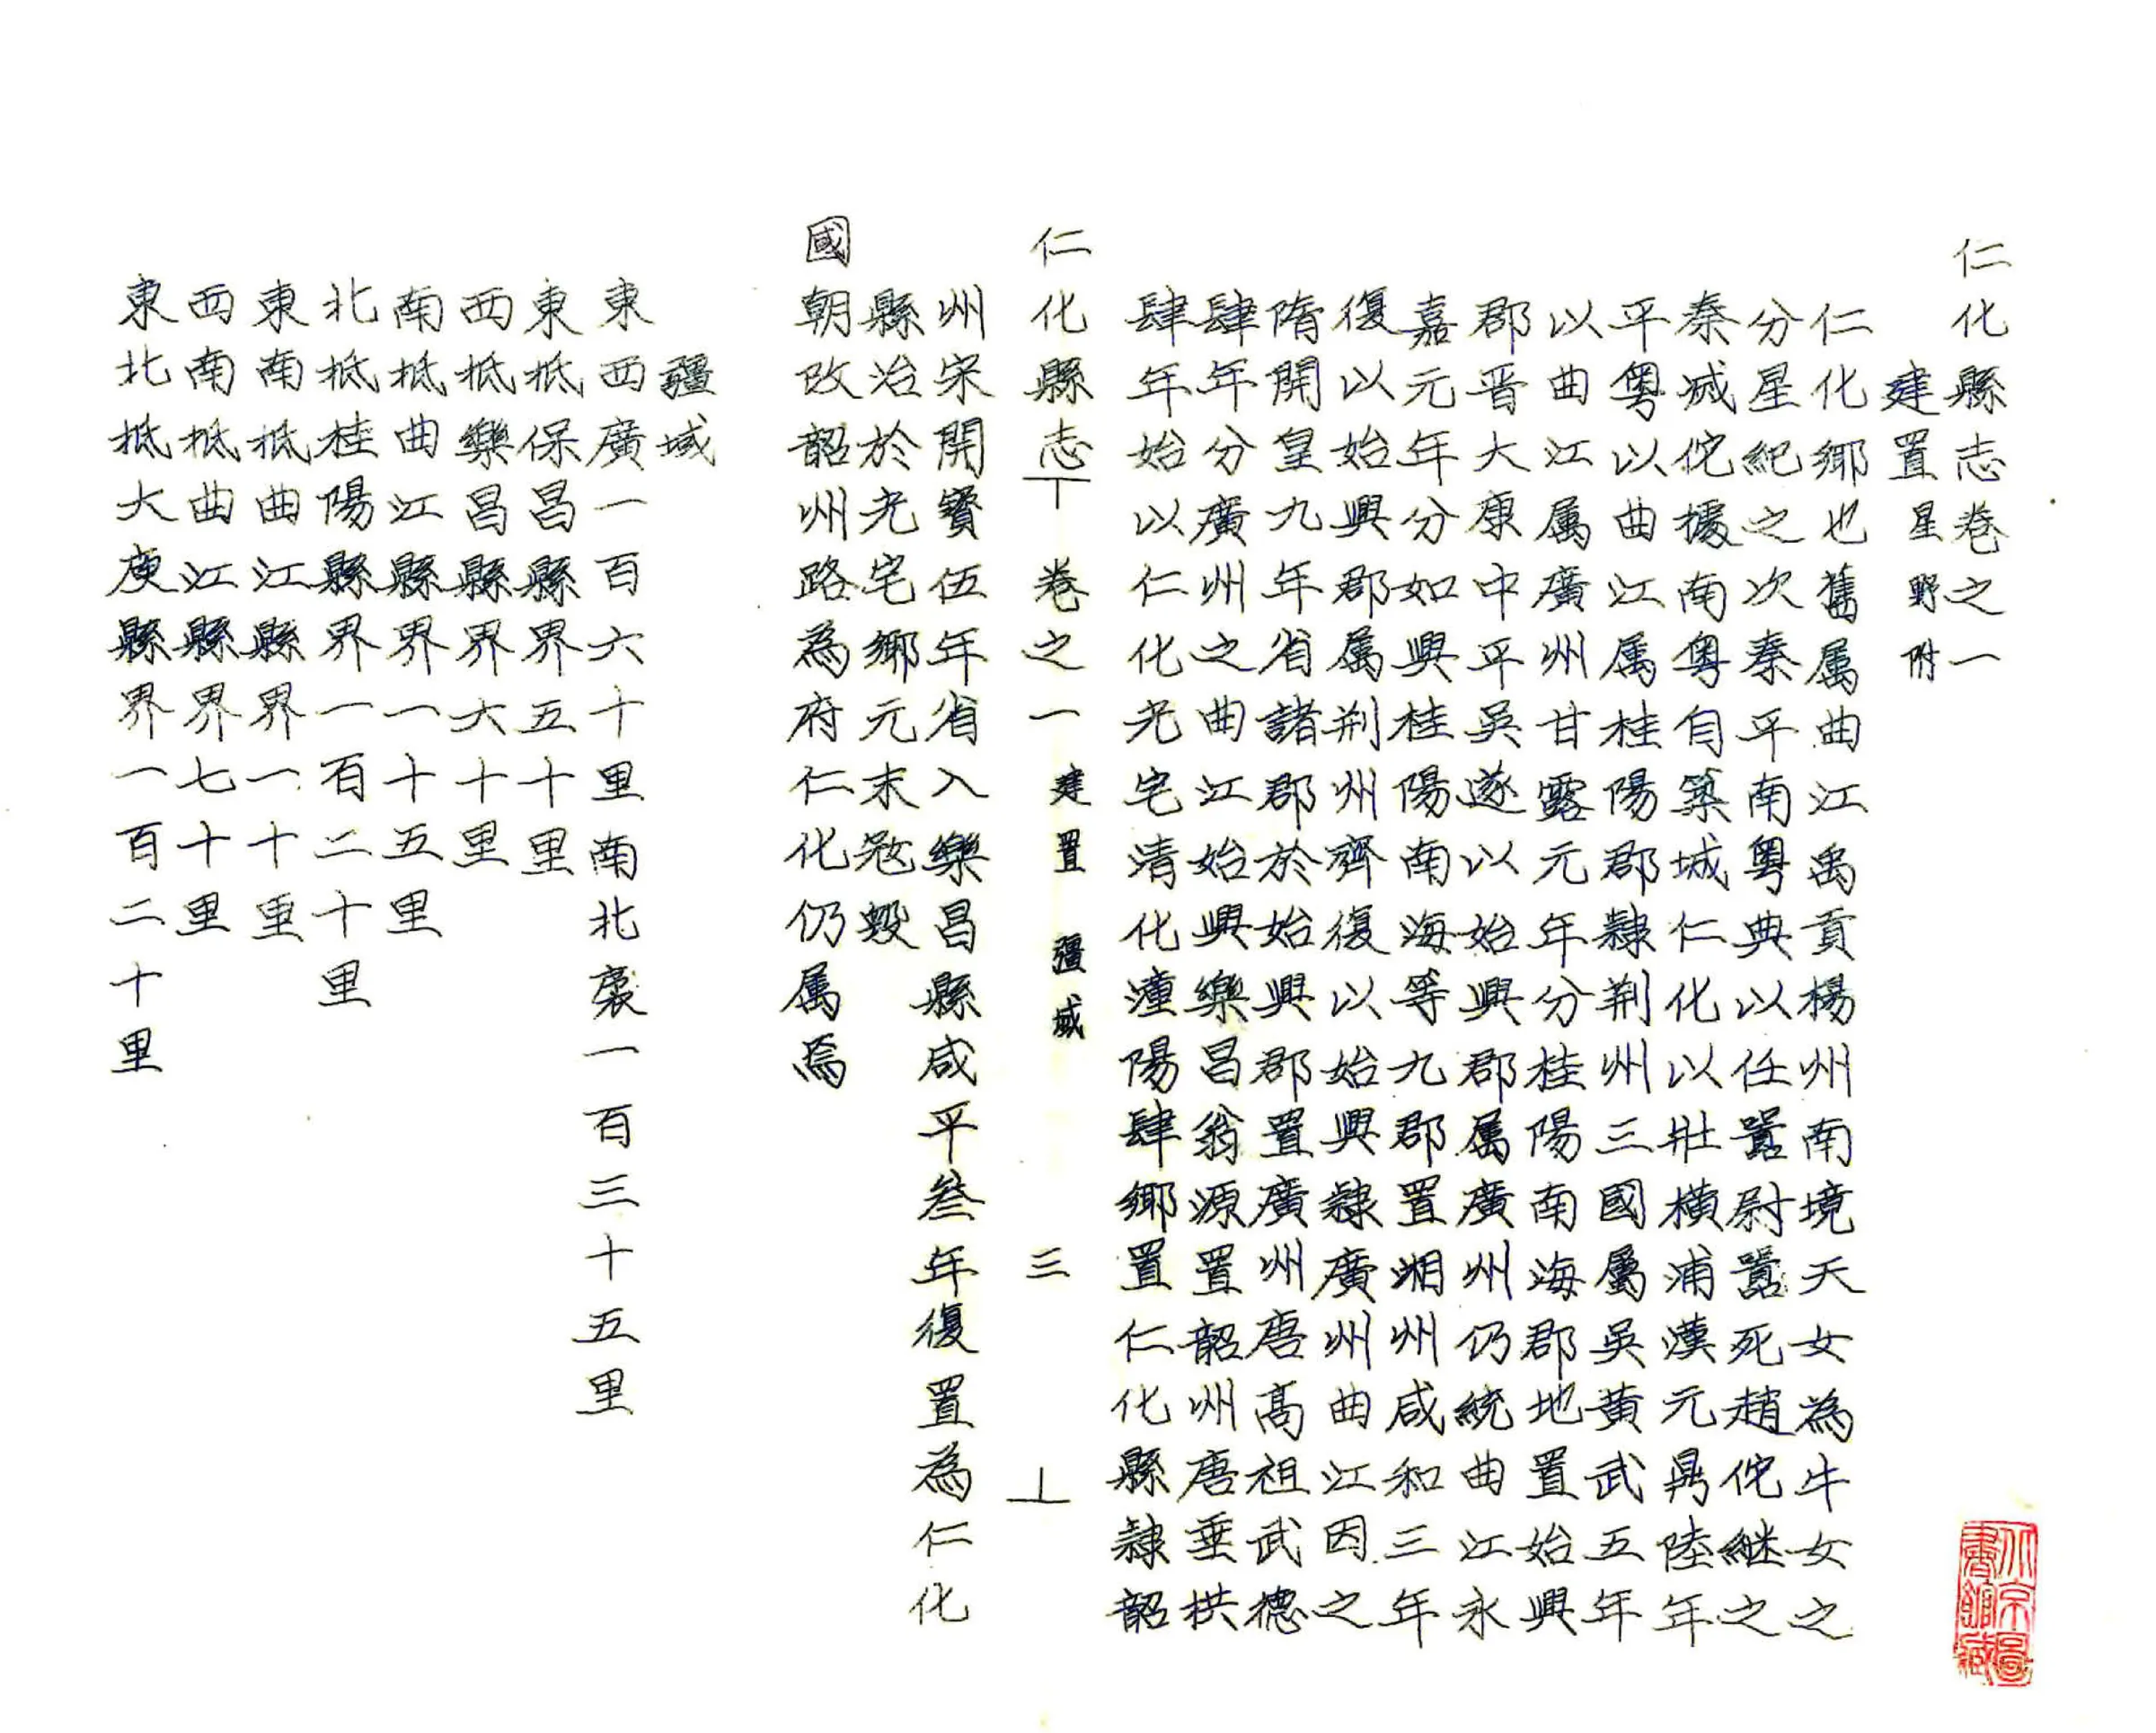 仁化縣志卷之一
建置星野附
仁化鄉也舊属曲江禹貢楊州南境天女為牛女之
分星紀之次秦平南粵典以任嚣尉嚣死趙佗継之
秦滅佗據南粵自築城仁化以壯橫浦漢元鼎陸年
平粵以曲江属桂陽郡隸荆州三國屬吳黄武五年
以曲江属廣州甘露元年分桂陽南海郡地置始興
郡晋大康中平吳遂以始興郡属廣州仍統曲江永
嘉元年分如興桂陽南海等九郡置湘州咸和三年
復以始興郡属荆州齊復以始興隸廣州曲江因之
隋開皇九年省諸郡於始興郡置廣州唐髙祖武德
肆年分廣州之曲江始興樂昌翁源置韶州唐垂拱
肆年始以仁化光宅清化潼陽肆鄉置仁化縣隸韶
仁化縣志 卷之一 建置 疆域 三
州宋開寳伍年省入樂昌縣咸平叁年復置為仁化
縣治於光宅鄉元末冦毀
國朝改韶州路為府仁化仍属焉
疆域
東西廣一百六十里南北袤一百三十五里
東抵保昌縣界五十里
西抵樂昌縣界六十里
南抵曲江縣界一十五里
北抵桂陽縣界一百二十里
東南抵曲江縣界一十里
西南抵曲江縣界七十里
東北抵大庾縣界一百二十里
北京圖
書館藏